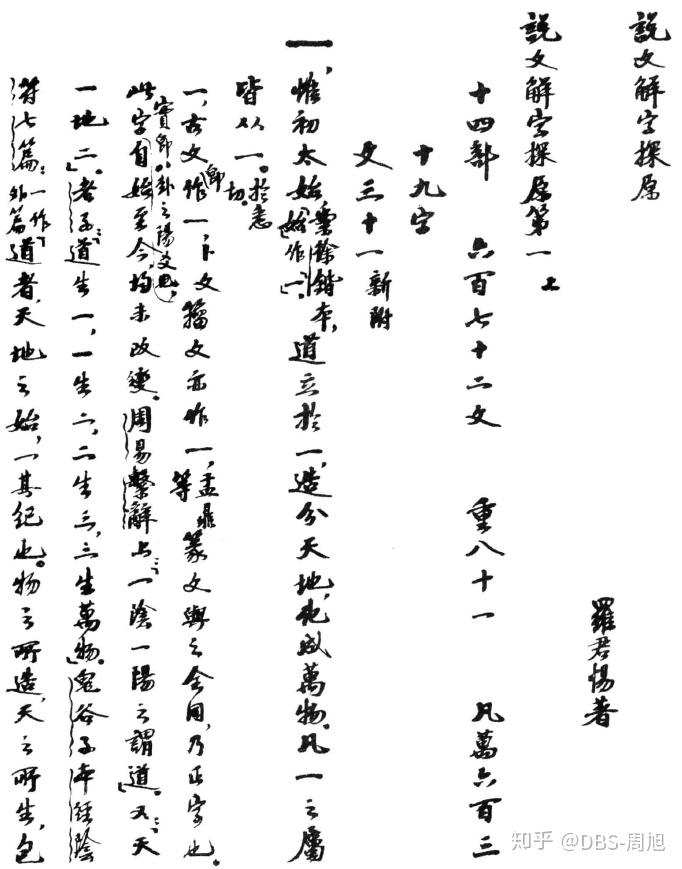 説文解字探原
羅君惕著
説文解字探原第一上
十四部 六百七十二文 重八十一 凡萬六百三
十九字
文三十一新附
一,惟初太始,道立於一,造分天地,化成萬物。凡一之屬
皆从一。於悉切。
一,古文作一,卜文籀文亦作一,盂鼎等篆文與之全同,乃正字也。
實即八卦之陽爻也,
此字自始至今,均未改變。周易繫辭上:「一陰一陽之謂道」。又:「天
一地二。」老子:「道生一,一生二,二生三,三生萬物。」鬼谷子本經陰
符七篇:一作外篇「道者,天地之始,一其紀也。物之所造,天之所生,包
知乎 @DBS-周旭